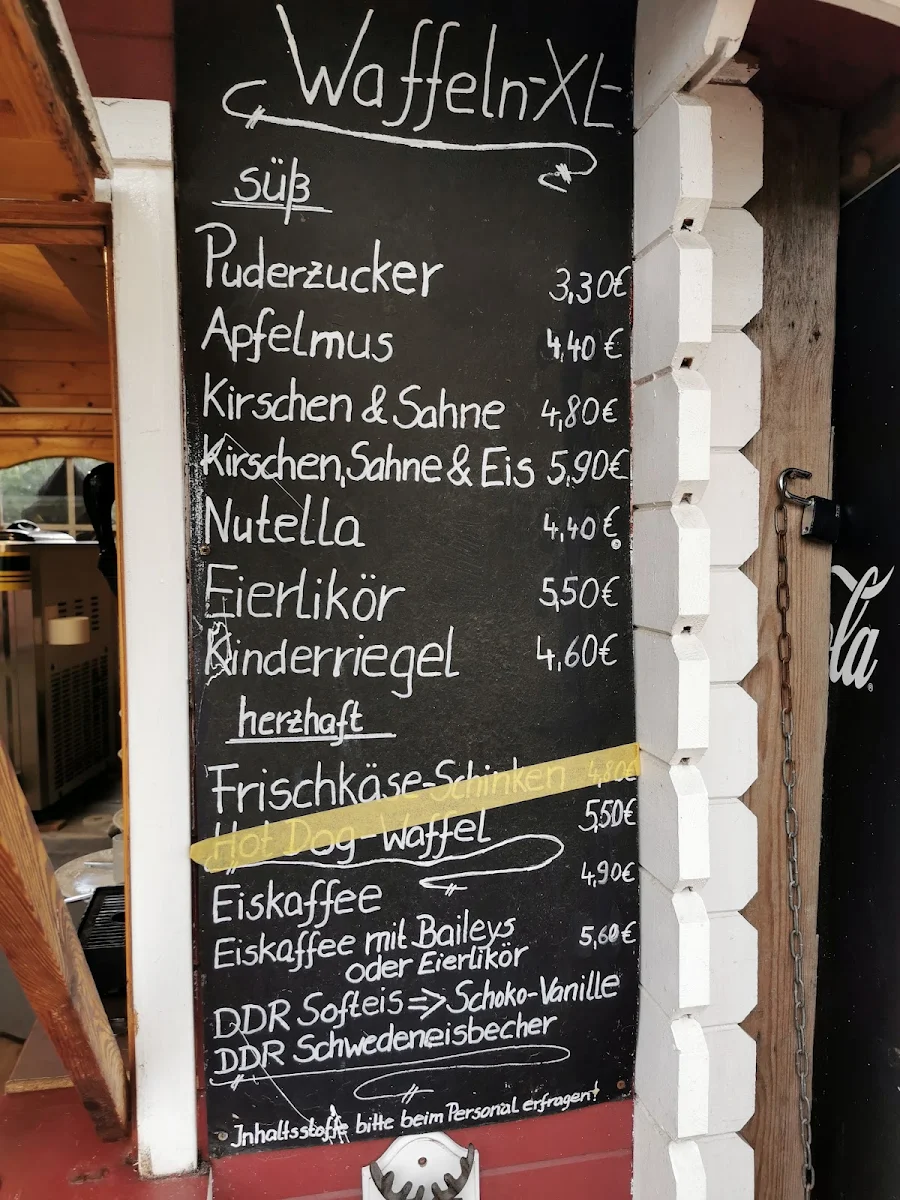 Waffeln-XL
süß
Puderzucker 3,30€
Apfelmus 4,40 €
Kirschen & Sahne 4,80€
Kirschen, Sahne & Eis 5,90€
Nutella 4,40 €
Eierlikör 5,50€
Kinderriegel 4,60€
herzhaft
Frischkäse-Schinken 4,80€
Hot Dog-Waffel 5,50€
Eiskaffee 4,90€
Eiskaffee mit Baileys 5,60€
oder Eierlikör
DDR Softeis => Schoko-Vanille
DDR Schwedeneisbecher
Inhaltsstoffe bitte beim Personal erfragen!
la